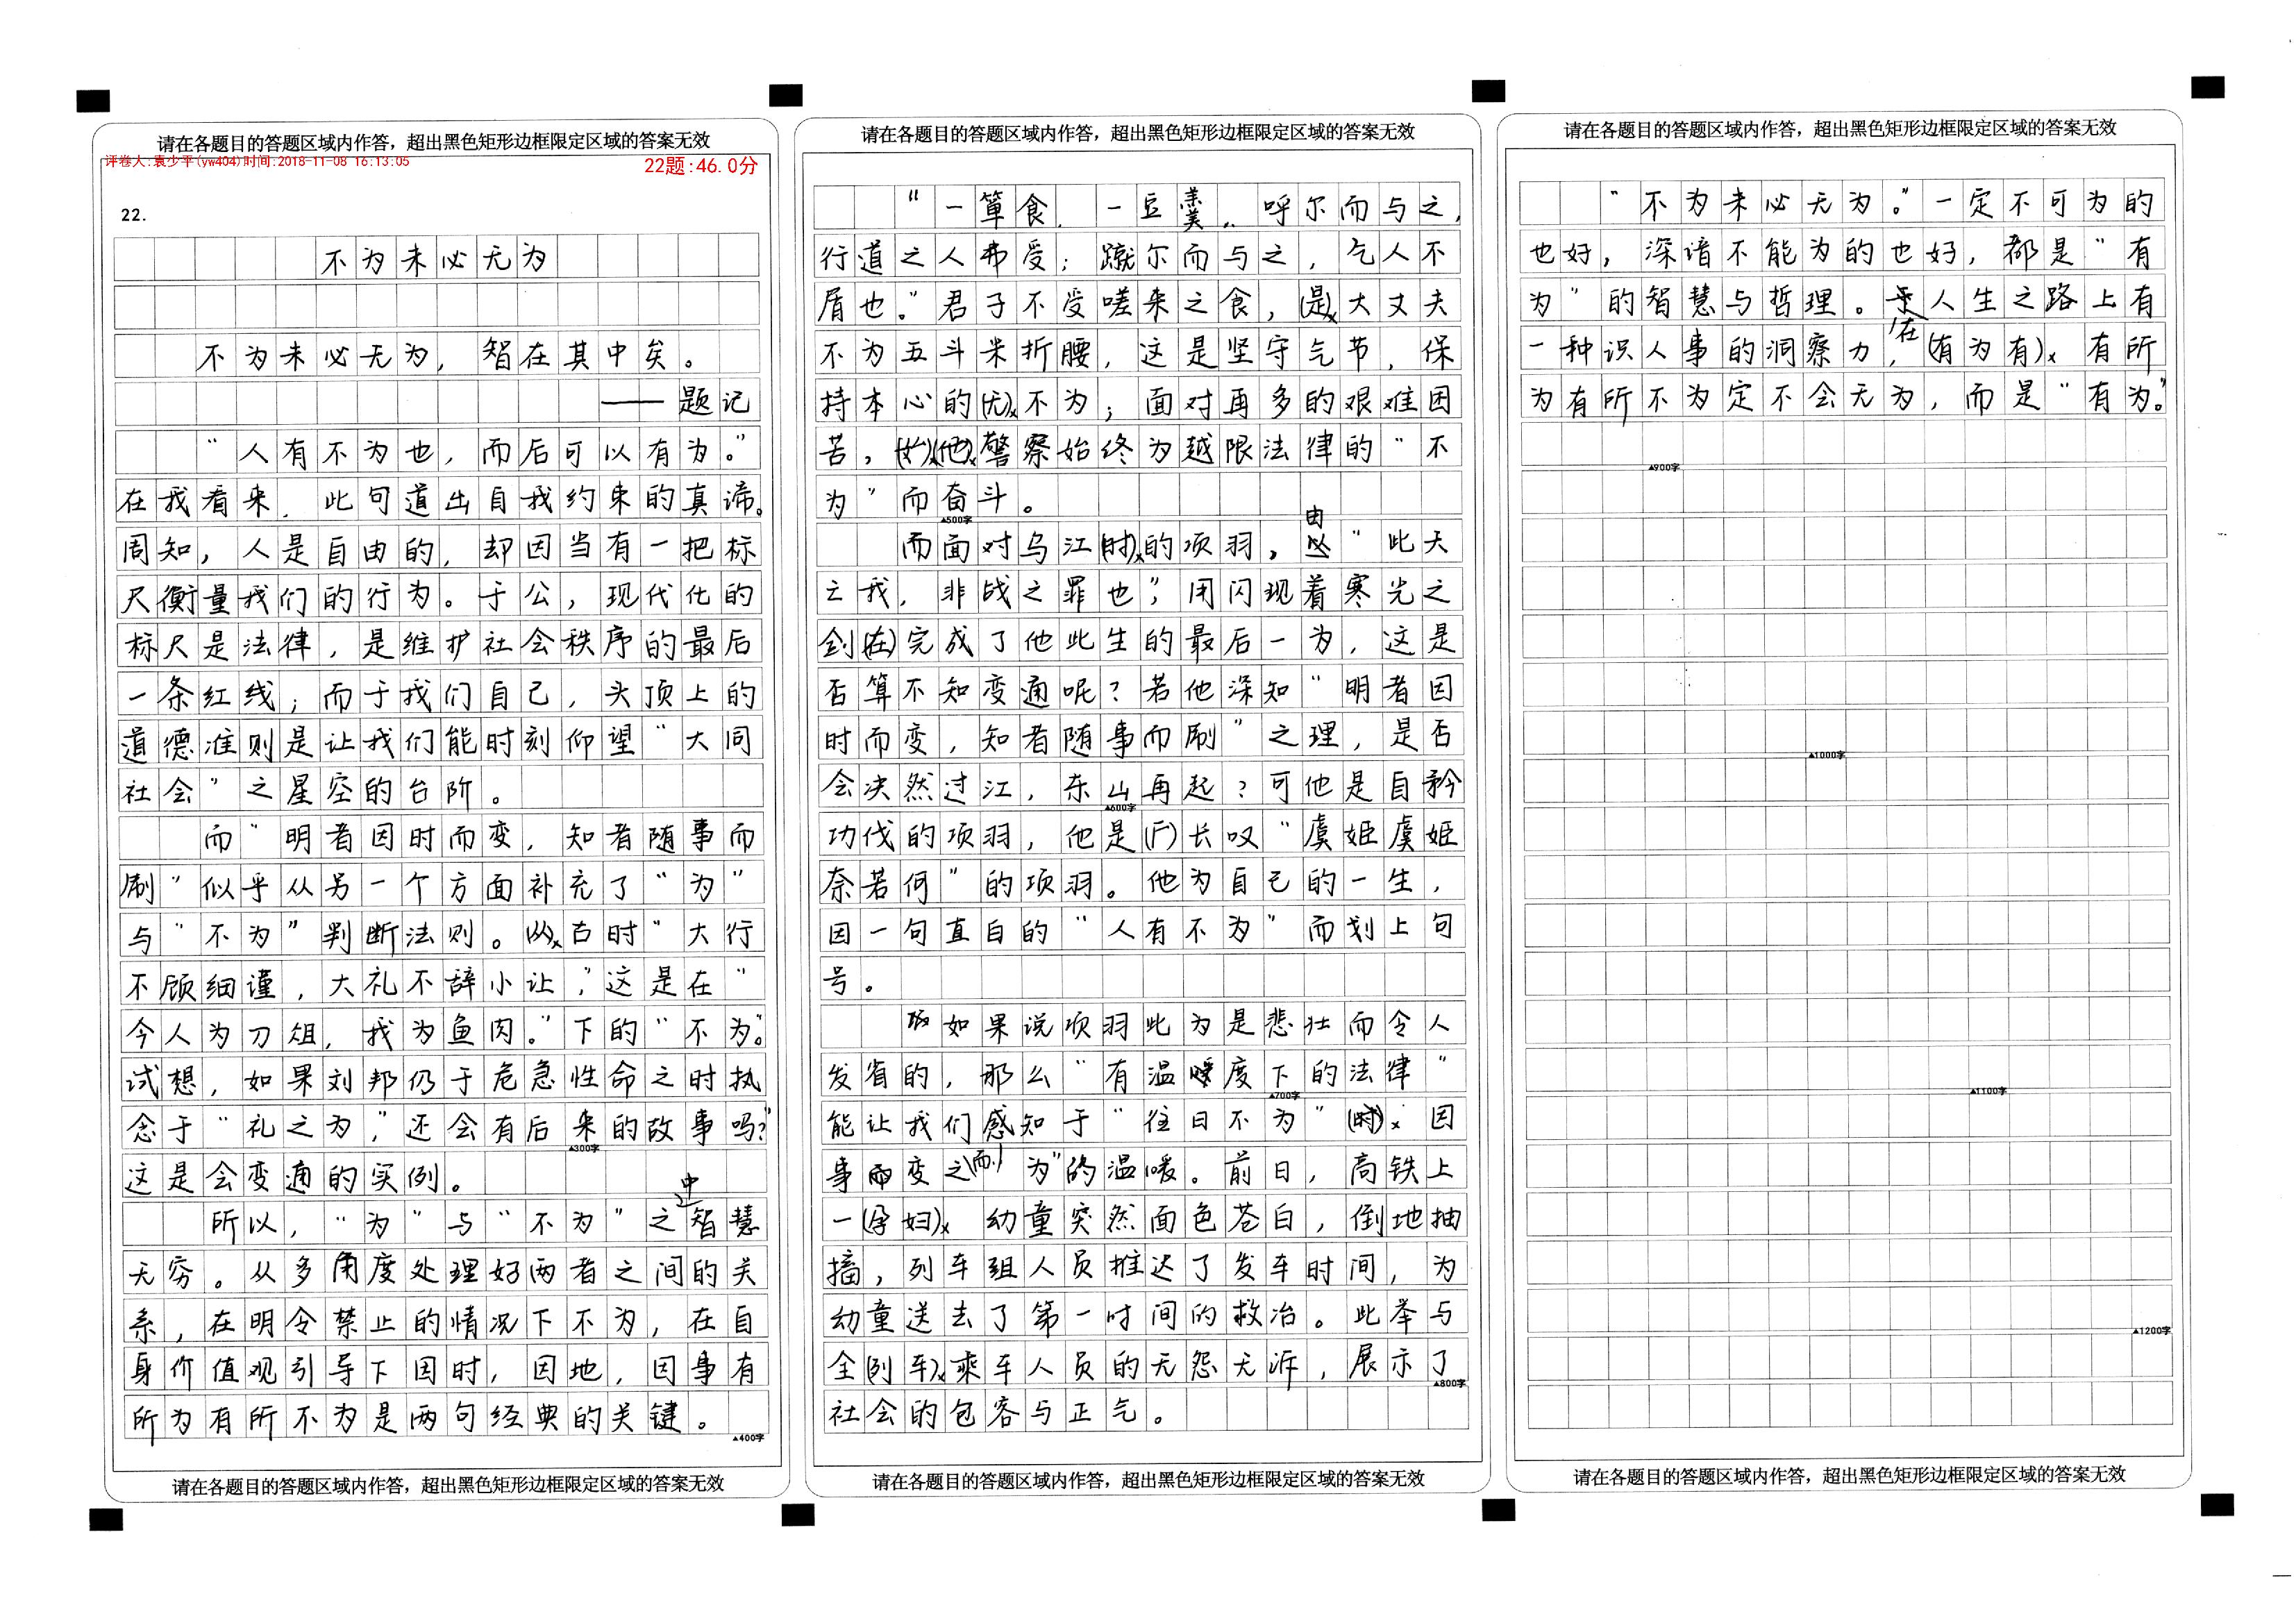 请在各题目的答题区域内作答，超出黑色矩形边框限定区域的答案无效
评卷人:袁少平(yw404)时间:2018-11-08 16:13:05
22题:46.0分
22.
不为未必无为
不为未必无为，智在其中矣。
——题记
“人有不为也，而后可以有为。”
在我看来，此句道出自我约束的真谛。
周知，人是自由的，却因当有一把标
尺衡量我们的行为。于公，现代化的
标尺是法律，是维护社会秩序的最后
一条红线；而于我们自己，头顶上的
道德准则是让我们能时刻仰望“大同
社会”之星空的台阶。
而“明者因时而变，知者随事而
制”似乎从另一个方面补充了“为”
与“不为”判断法则。古时“大行
不顾细谨，大礼不辞小让，”这是在“
今人为刀俎，我为鱼肉。”下的“不为”。
试想，如果刘邦仍于危急性命之时执
念于“礼之为，”还会有后来的故事吗？”
▲300字
这是会变通的实例。
所以，“为”与“不为”之中智慧
无穷。从多角度处理好两者之间的关
系，在明令禁止的情况下不为，在自
身价值观引导下因时，因地，因事有
所为有所不为是两句经典的关键。
▲400字
请在各题目的答题区域内作答，超出黑色矩形边框限定区域的答案无效
请在各题目的答题区域内作答，超出黑色矩形边框限定区域的答案无效
“一箪食，一豆羹，呼尔而与之，
行道之人弗受；蹴尔而与之，乞人不
屑也。”君子不受嗟来之食，(是)大丈夫
不为五斗米折腰，这是坚守气节，保
持本心的(无)不为；面对再多的艰难困
苦，(他)警察始终为越限法律的“不
为”而奋斗。
▲500字
而面对乌江(时)的项羽，由“此天
之我，非战之罪也”，用闪现着寒光之
剑(在)完成了他此生的最后一为，这是
否算不知变通呢？若他深知“明者因
时而变，知者随事而制”之理，是否
会决然过江，东山再起？可他是自矜
▲600字
功伐的项羽，他是长叹“虞姬虞姬
奈若何”的项羽。他为自己的一生，
因一句直白的“人有不为”而划上句
号。
如果说项羽此为是悲壮而令人
发省的，那么“有温度下的法律”
▲700字
能让我们感知于“往日不为”(时)因
事而变之(而)为”的温暖。前日，高铁上
一(孕妇)幼童突然面色苍白，倒地抽
搐，列车组人员推迟了发车时间，为
幼童送去了第一时间的救治。此举与
全(列车)乘车人员的无怨无诉，展示了
▲800字
社会的包容与正气。
请在各题目的答题区域内作答，超出黑色矩形边框限定区域的答案无效
请在各题目的答题区域内作答，超出黑色矩形边框限定区域的答案无效
“不为未必无为。”一定不可为的
也好，深谙不能为的也好，都是“有
为”的智慧与哲理。在人生之路上有
一种识人事的洞察力，(有为有)有所
为有所不为定不会无为，而是“有为”。
▲900字
▲1000字
▲1100字
▲1200字
请在各题目的答题区域内作答，超出黑色矩形边框限定区域的答案无效